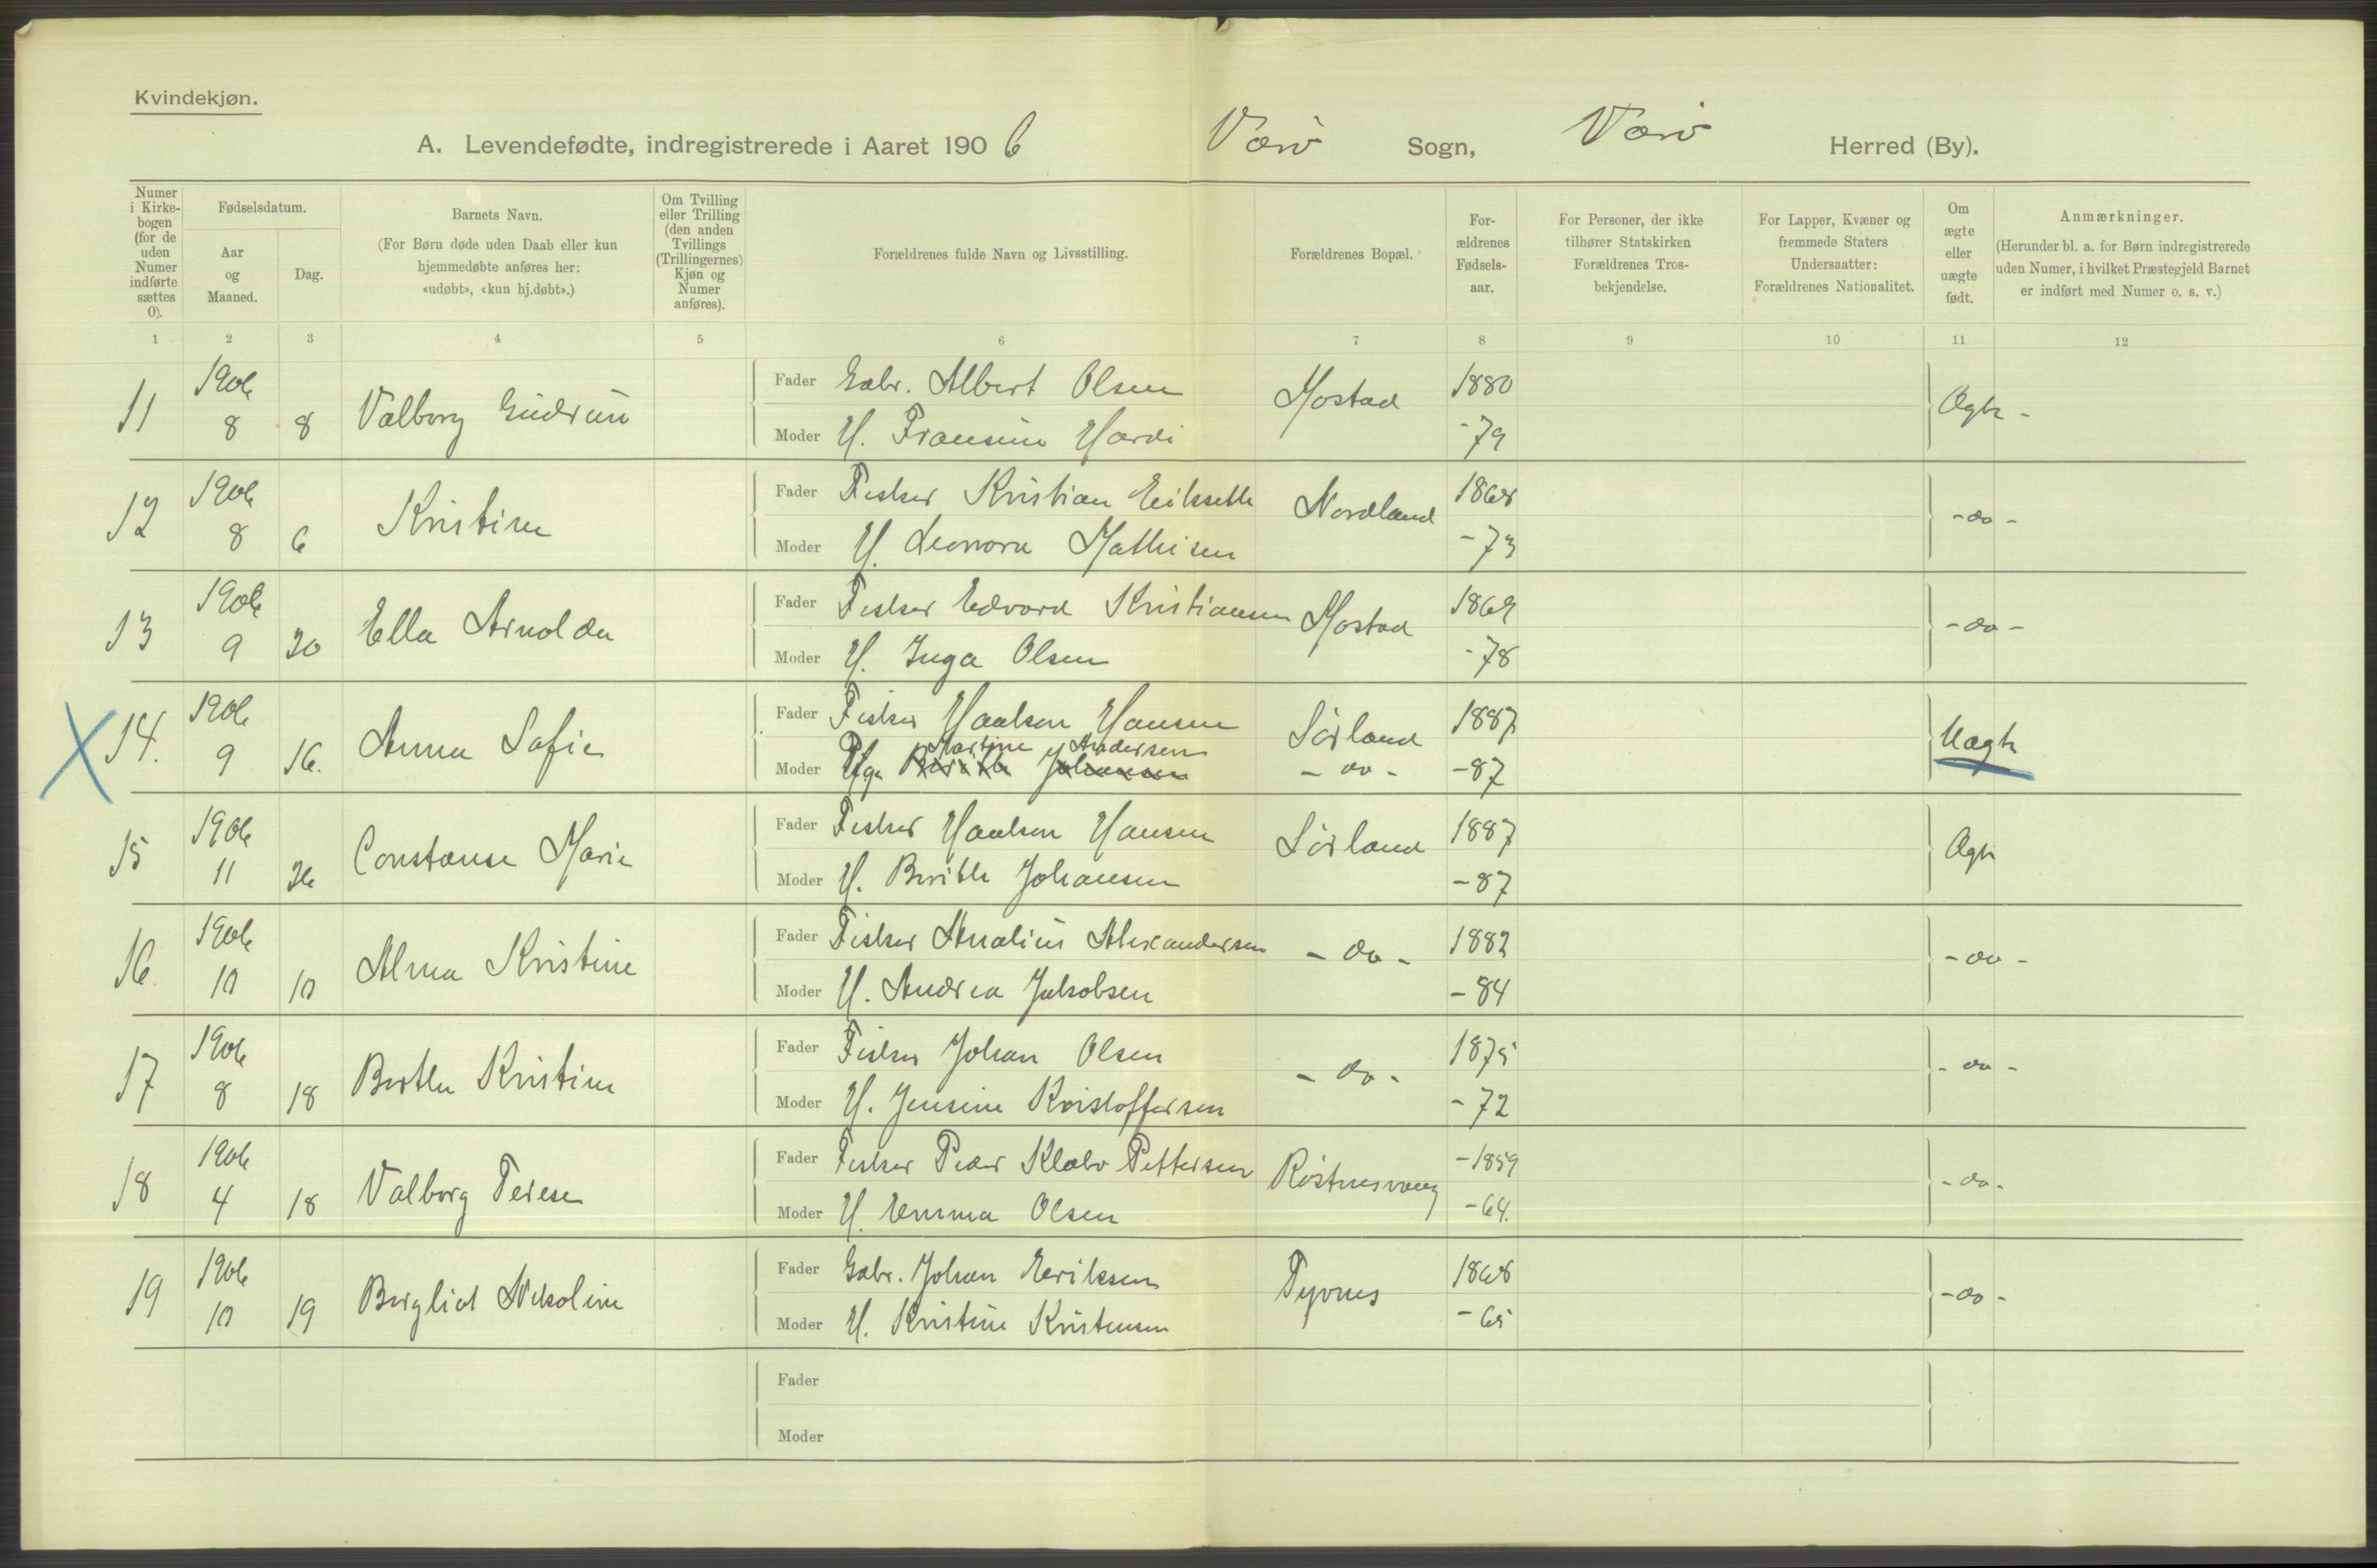 Kvindekjøn.
A. Levendefødte, indregistrerede i Aaret 1906 Værø Sogn, Værø Herred (By).
Numer i Kirkebogen (for de uden Numer indførte sættes O).
Fødselsdatum.
Aar og Maaned.
Dag.
Barnets Navn.
(For Børn døde uden Daab eller kun hjemmedøbte anføres her: «udøbt», «kun hj.døbt».)
Om Tvilling eller Trilling (den anden Tvillings (Trillingernes) Kjøn og Numer anføres).
Forældrenes fulde Navn og Livsstilling.
Forældrenes Bopæl.
Forældrenes Fødselsaar.
For Personer, der ikke tilhører Statskirken Forældrenes Trosbekjendelse.
For Lapper, Kvæner og fremmede Staters Undersaatter: Forældrenes Nationalitet.
Om ægte eller uægte født.
Anmærkninger.
(Herunder bl. a. for Børn indregistrerede uden Numer, i hvilket Præstegjeld Barnet er indført med Numer o. s. v.)
1 2 3 4 5 6 7 8 9 10 11 12
11 1906 8 8 Valborg Gudrun
Fader Gabr. Albert Olsen Mostad 1880 Ægte -
Moder H. Fransine Hardi -79
12 1906 8 6 Kristine
Fader Fisker Kristian Nordland 1868 - do -
Moder H. Leonora Mathisen -73
13 1906 9 30 Ella Arnolda
Fader Fisker Edvard Kristiansen Mostad 1869 - do -
Moder H. Inga Olsen -78
14. 1906 9 16. Anna Sofie
Fader Fisker Haakon Hansen Sørland 1887 Uægte
Martine Andersen
Moder Pige Berithe Johansen - do - -87
15 1906 11 26 Constanse Marie
Fader Fisker Haakon Hansen Sørland 1887 Ægte
Moder H. Berithe Johansen -87
16 1906 10 10 Alma Kristine
Fader Fisker Analius Alexandersen - do - 1882 - do -
Moder H. Andrea Jakobsen -84
17 1906 8 18 Berthe Kristine
Fader Fisker Johan Olsen - do - 1875 - do -
Moder H. Jensine Kristoffersen -72
18 1906 4 18 Valborg Terese
Fader Fisker Peder Klæbo Pettersen Røstnesvaag -1859 - do -
Moder H. Emma Olsen -64.
19 1906 10 19 Bergliot Nikoline
Fader Gabr. Johan Eriksen Tyvnes 1868 - do -
Moder H. Kristine Kristensen -65
Fader
Moder